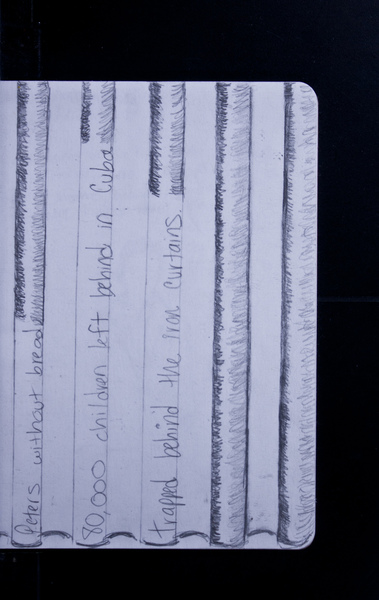 Peters without bread
80,000 children left behind in Cuba
trapped behind the iron curtains.